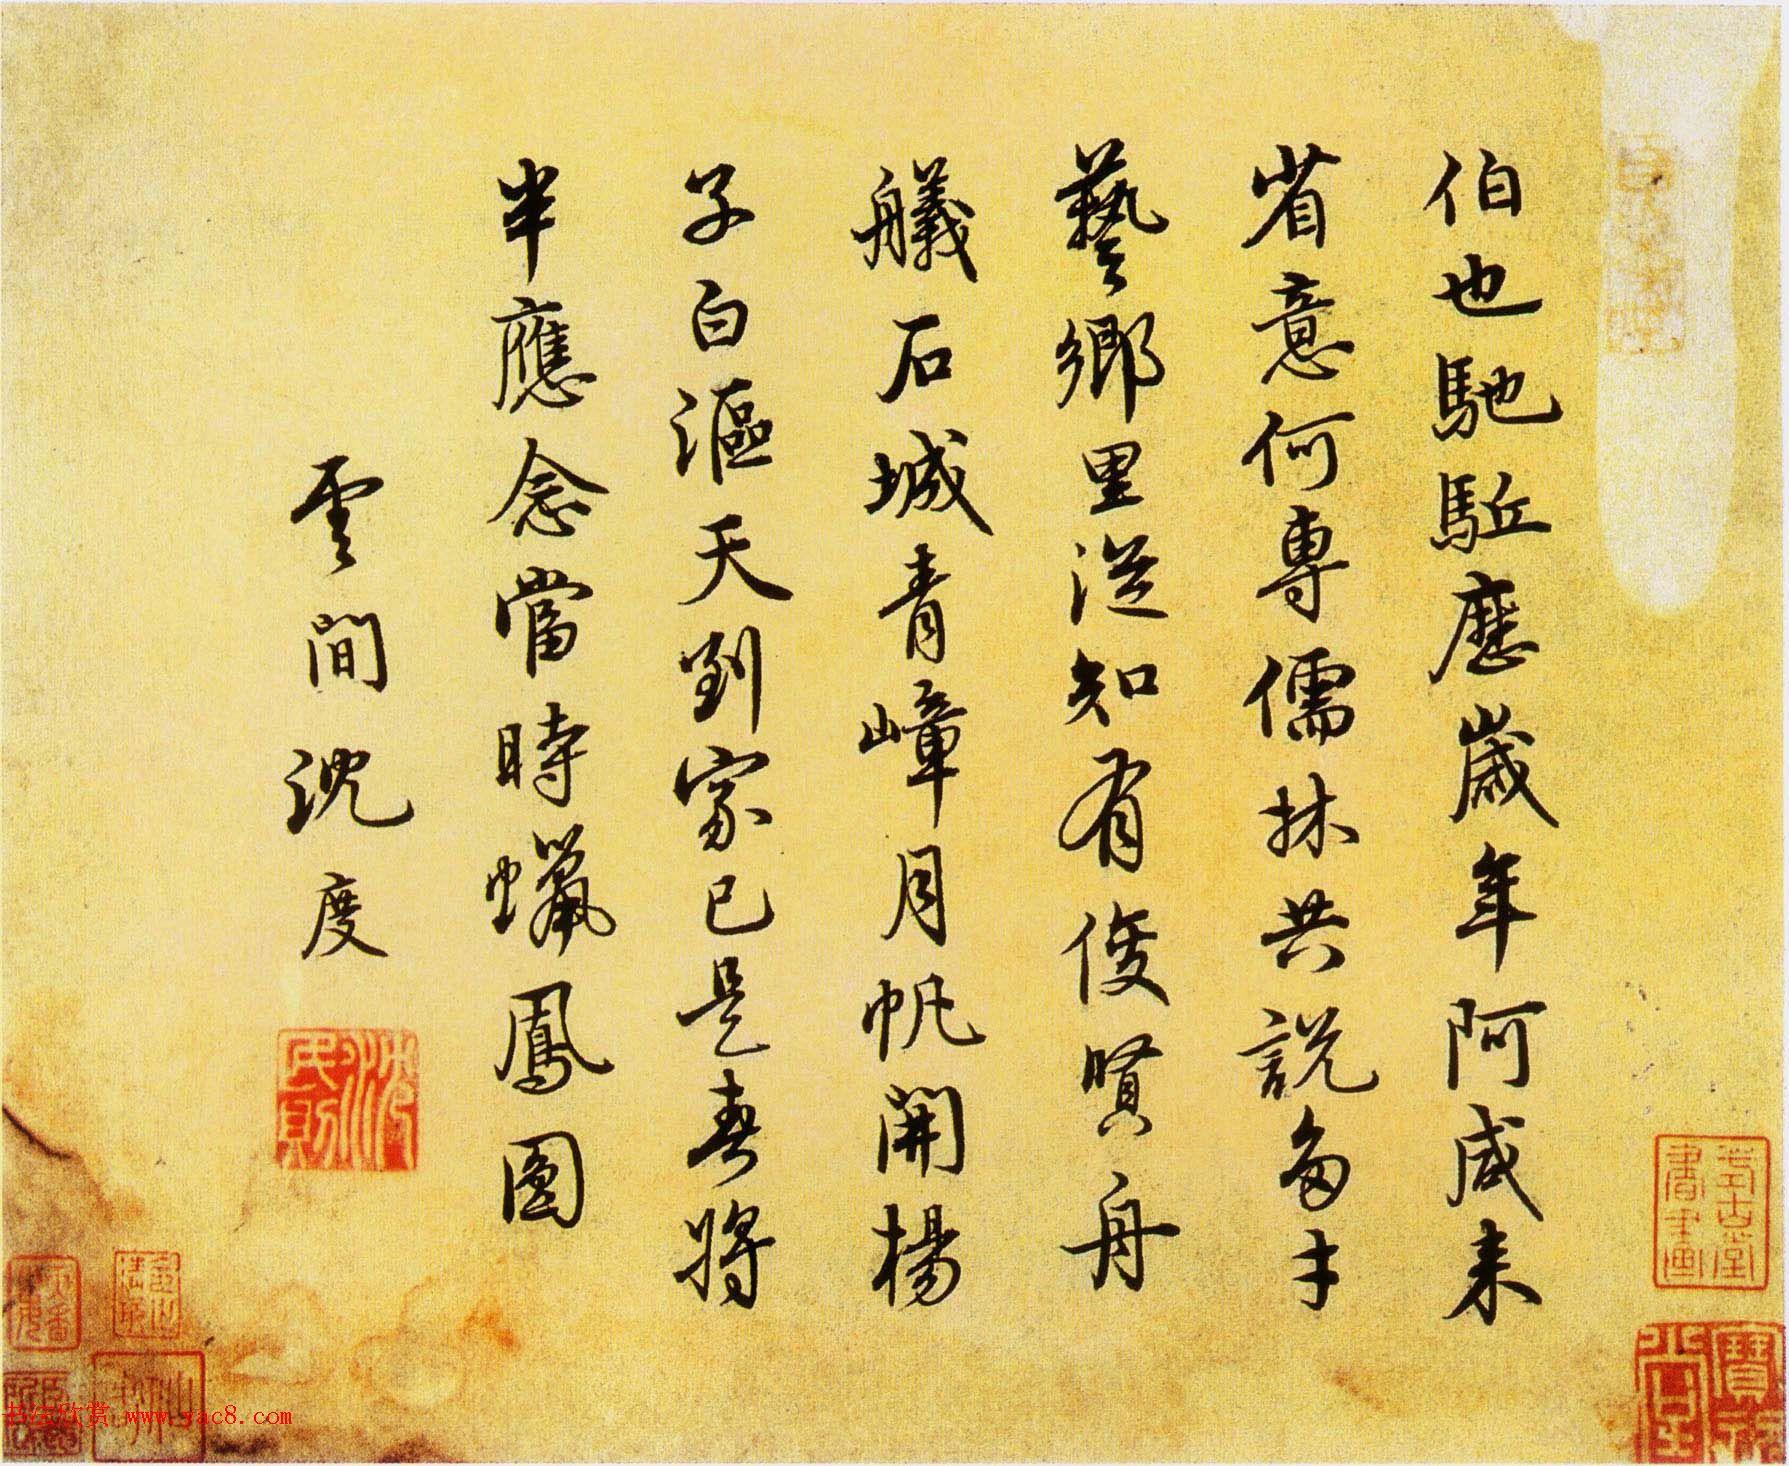 伯也馳駈歷歲年阿咸来
省意何專儒林共説多才
藝鄉里從知有俊賢舟
艤石城青嶂月帆開楊
子白漚天到家已是春將
半應念當時蠟鳳圓
雲間沈度
沈氏民則
书法欣赏 www.yac8.com